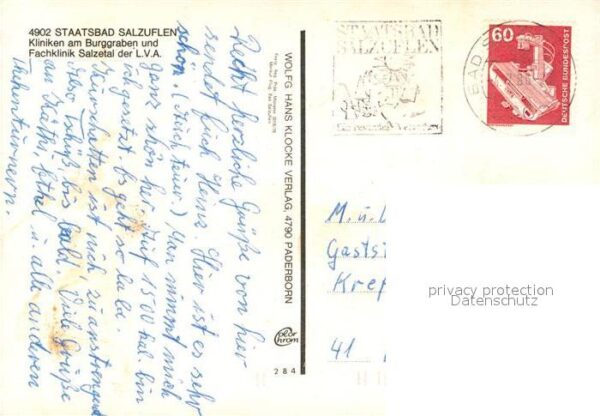 4902 STAATSBAD SALZUFLEN
Kliniken am Burggraben und
Fachklinik Salzetal der L.V.A.
Recht herzliche Grüße von hier
sendet Euch Heinz. Hier ist es sehr
schön. (Auch teuer.) Man nimmt mich
ganz schön her. Auf 1500 kal. bin
ich gesetzt. Es geht so la la.
ist nicht zu anstrengend
bis bald. Viele Grüße
an u. alle anderen
WOLFG. HANS KLOCKE VERLAG, 4790 PADERBORN
color
chrom
284
STAATSBAD
SALZUFLEN
BAD S
60
DEUTSCHE BUNDESPOST
M. u.
Gastst
Krep
41
privacy protection
Datenschutz